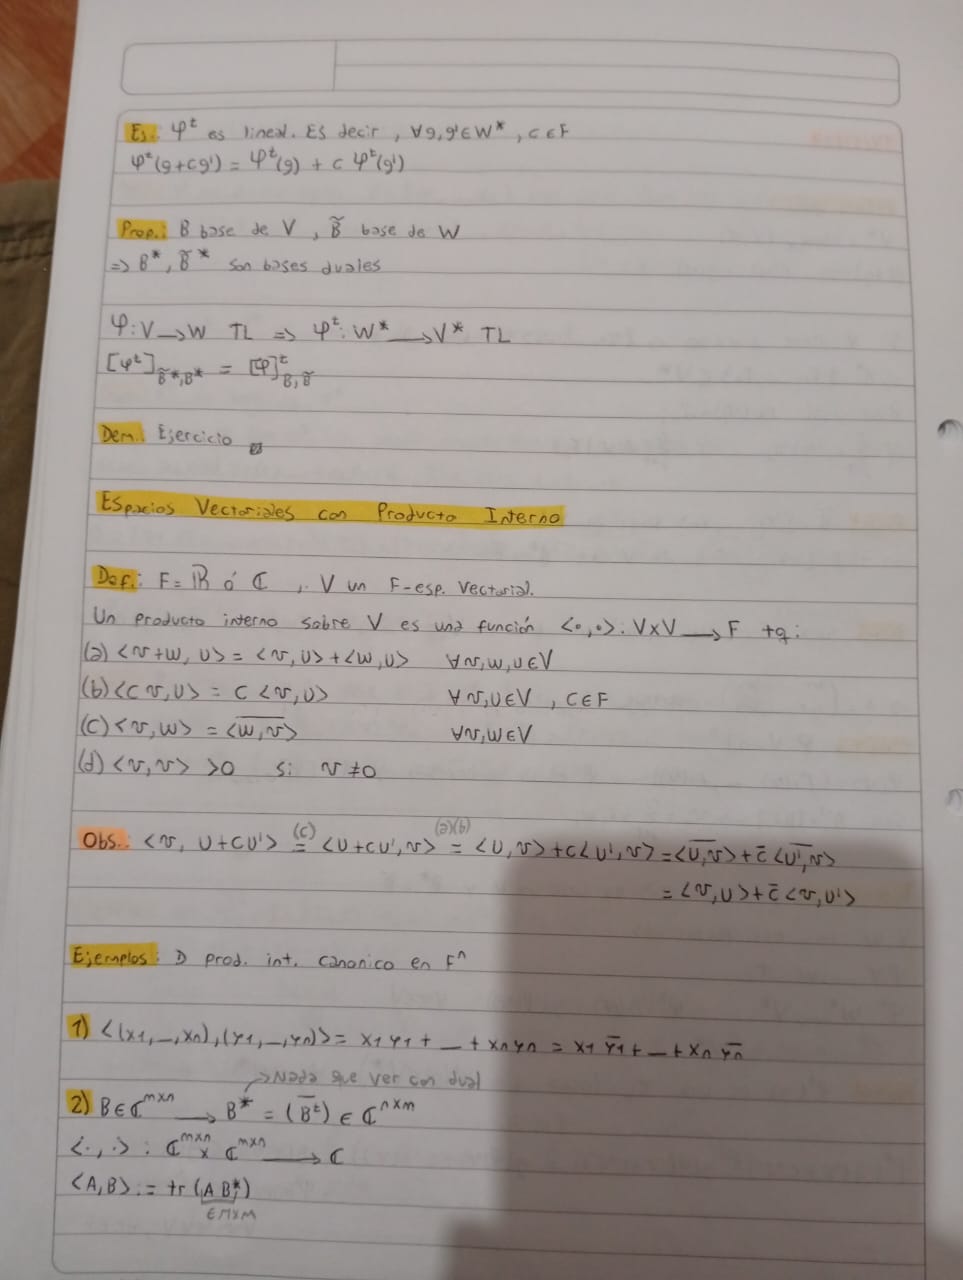 Ej.: φᵗ es lineal. Es decir, ∀g,g'∈W*, c∈F
φᵗ(g+cg') = φᵗ(g) + c φᵗ(g')
Prop.: B base de V, B̃ base de W
=> B*, B̃* son bases duales
φ: V → W TL => φᵗ: W* → V* TL
[φᵗ]_B̃*,B* = [φ]ᵗ_B,B̃
Dem.: Ejercicio
Espacios Vectoriales con Producto Interno
Def.: F = ℝ ó ℂ, V un F-esp. Vectorial.
Un producto interno sobre V es una función <∘,∘>: V×V → F tq:
(a) <v+w, u> = <v,u> + <w,u> ∀v,w,u∈V
(b) <cv,u> = c <v,u> ∀v,u∈V, c∈F
(c) <v,w> = <w̅,̅v̅> ∀v,w∈V
(d) <v,v> >0 si v≠0
Obs.: <v, u+cu'> (c)= <u+cu',v> (a)(b)= <u,v>+c<u',v> = <u̅,̅v̅>+c̄<u̅'̅,̅v̅>
= <v,u>+c̄<v,u'>
Ejemplos: D prod. int. canonico en Fⁿ
1) <(x₁,_,xn),(y₁,_,yn)> = x₁y₁ + _ + xnyn = x₁ȳ₁ + _ + xnȳn
→ Nada que ver con dual
2) B∈ℂᵐˣⁿ → B* = (B̅ᵗ̅) ∈ ℂⁿˣᵐ
<·,·> : ℂᵐˣⁿ × ℂᵐˣⁿ → ℂ
<A,B> := tr(AB*)
∈ M×M